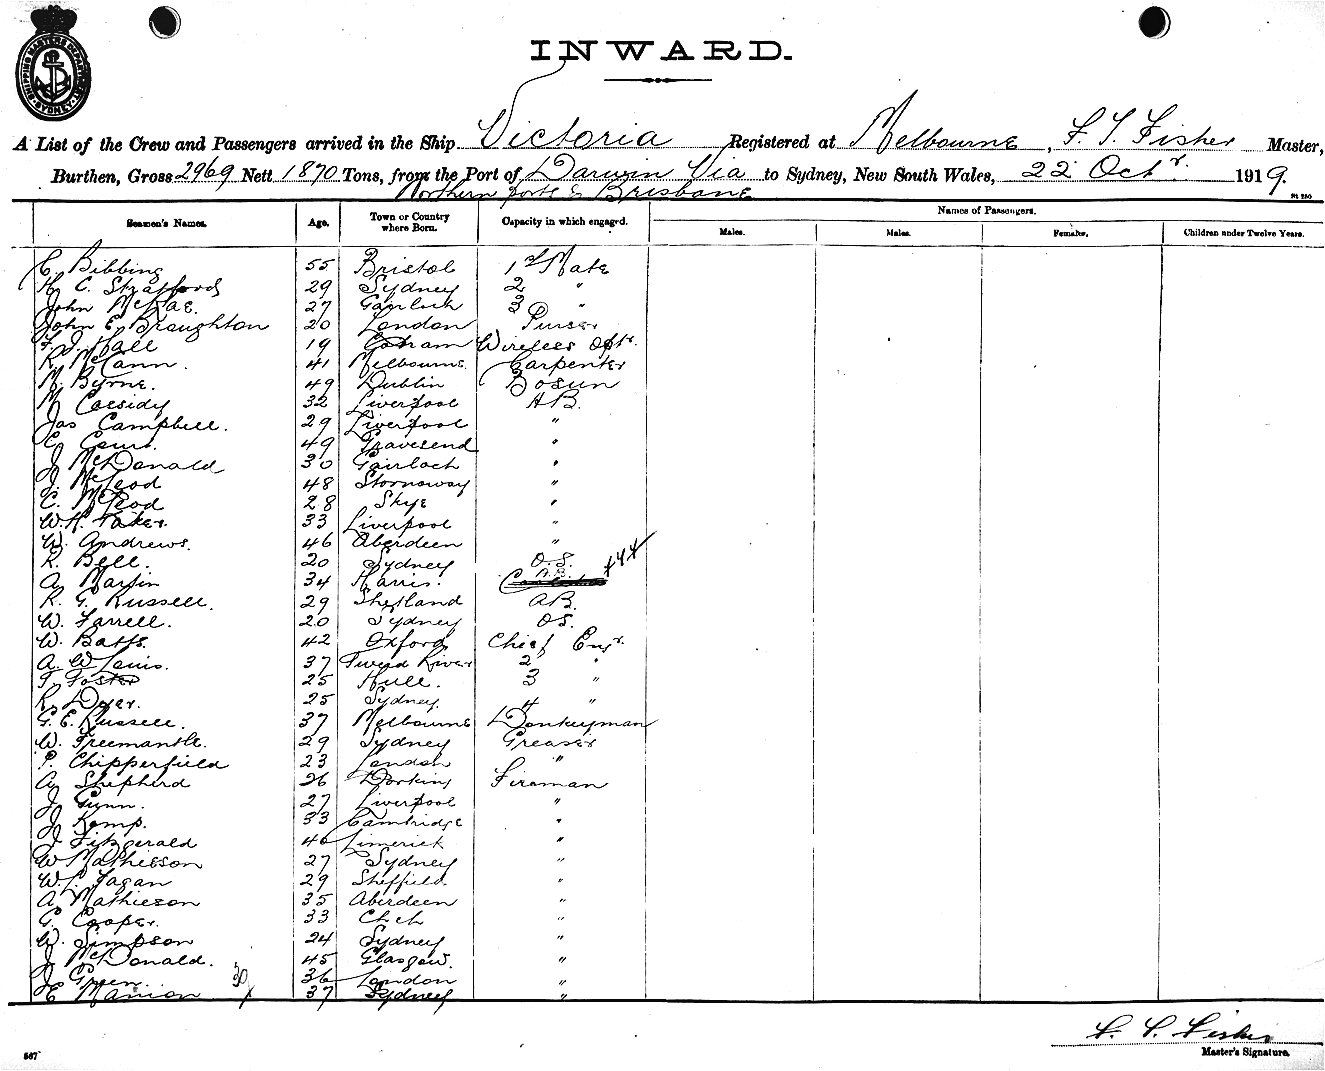 SHIPPING MASTERS DEPARTMENT SYDNEY
INWARD.
A List of the Crew and Passengers arrived in the Ship Victoria Registered at Melbourne, F. J. Fisher Master,
Burthen, Gross 2969 Nett 1870 Tons, from the Port of Darwin Via to Sydney, New South Wales, 22 Octr. 1919.
Northern ports & Brisbane
Seamen's Names. Age. Town or Country where Born. Capacity in which engaged. Names of Passengers.
Males. Males. Females. Children under Twelve Years.
C. Bibbing 55 Bristol 1st Mate
H. C. Strafford 29 Sydney 2 "
John McRae. 27 Gairloch 3 "
John E. Broughton 20 London Purser
F. J. Hall 19 Wireless Optr.
R. McCann. 41 Melbourne. Carpenter
M. Byrne. 49 Dublin Bosun
M. Cassidy 32 Liverpool A.B.
Jas Campbell. 29 Liverpool "
C. 49 Gravesend "
J. McDonald 30 Gairloch "
J. McLeod 48 Stornoway "
C. McLeod 28 Skye "
W. H. 33 Liverpool "
W. Andrews. 46 Aberdeen "
R. Bell. 20 Sydney O.S.
A. Martin 34 Harris. A.B.
R. G. Russell. 29 Shetland AB.
W. Farrell. 20 Sydney OS.
W. Batts. 42 Oxford Chief Engr.
A. W. Lewis. 37 Tweed River 2 "
T. Foster 25 Hull. 3 "
R. Dyer. 25 Sydney. 4 "
G. E. Russell. 37 Melbourne Donkeyman
W. Freemantle. 29 Sydney Greaser
P. Chipperfield 23 London "
A. Shepherd 26 Dorking Fireman
J. Gunn. 27 Liverpool "
J. Kemp. 33 Cambridge "
J. Fitzgerald 40 Limerick "
W Mathieson 27 Sydney "
W. L. Fagan 29 Sheffield "
A. Mathieson 35 Aberdeen "
G. Cooper. 33 "
W. Simpson 24 Sydney "
J. McDonald. 45 Glasgow. "
J. Green. 36 London "
E. Manion 37 Sydney "
Master's Signature.
567